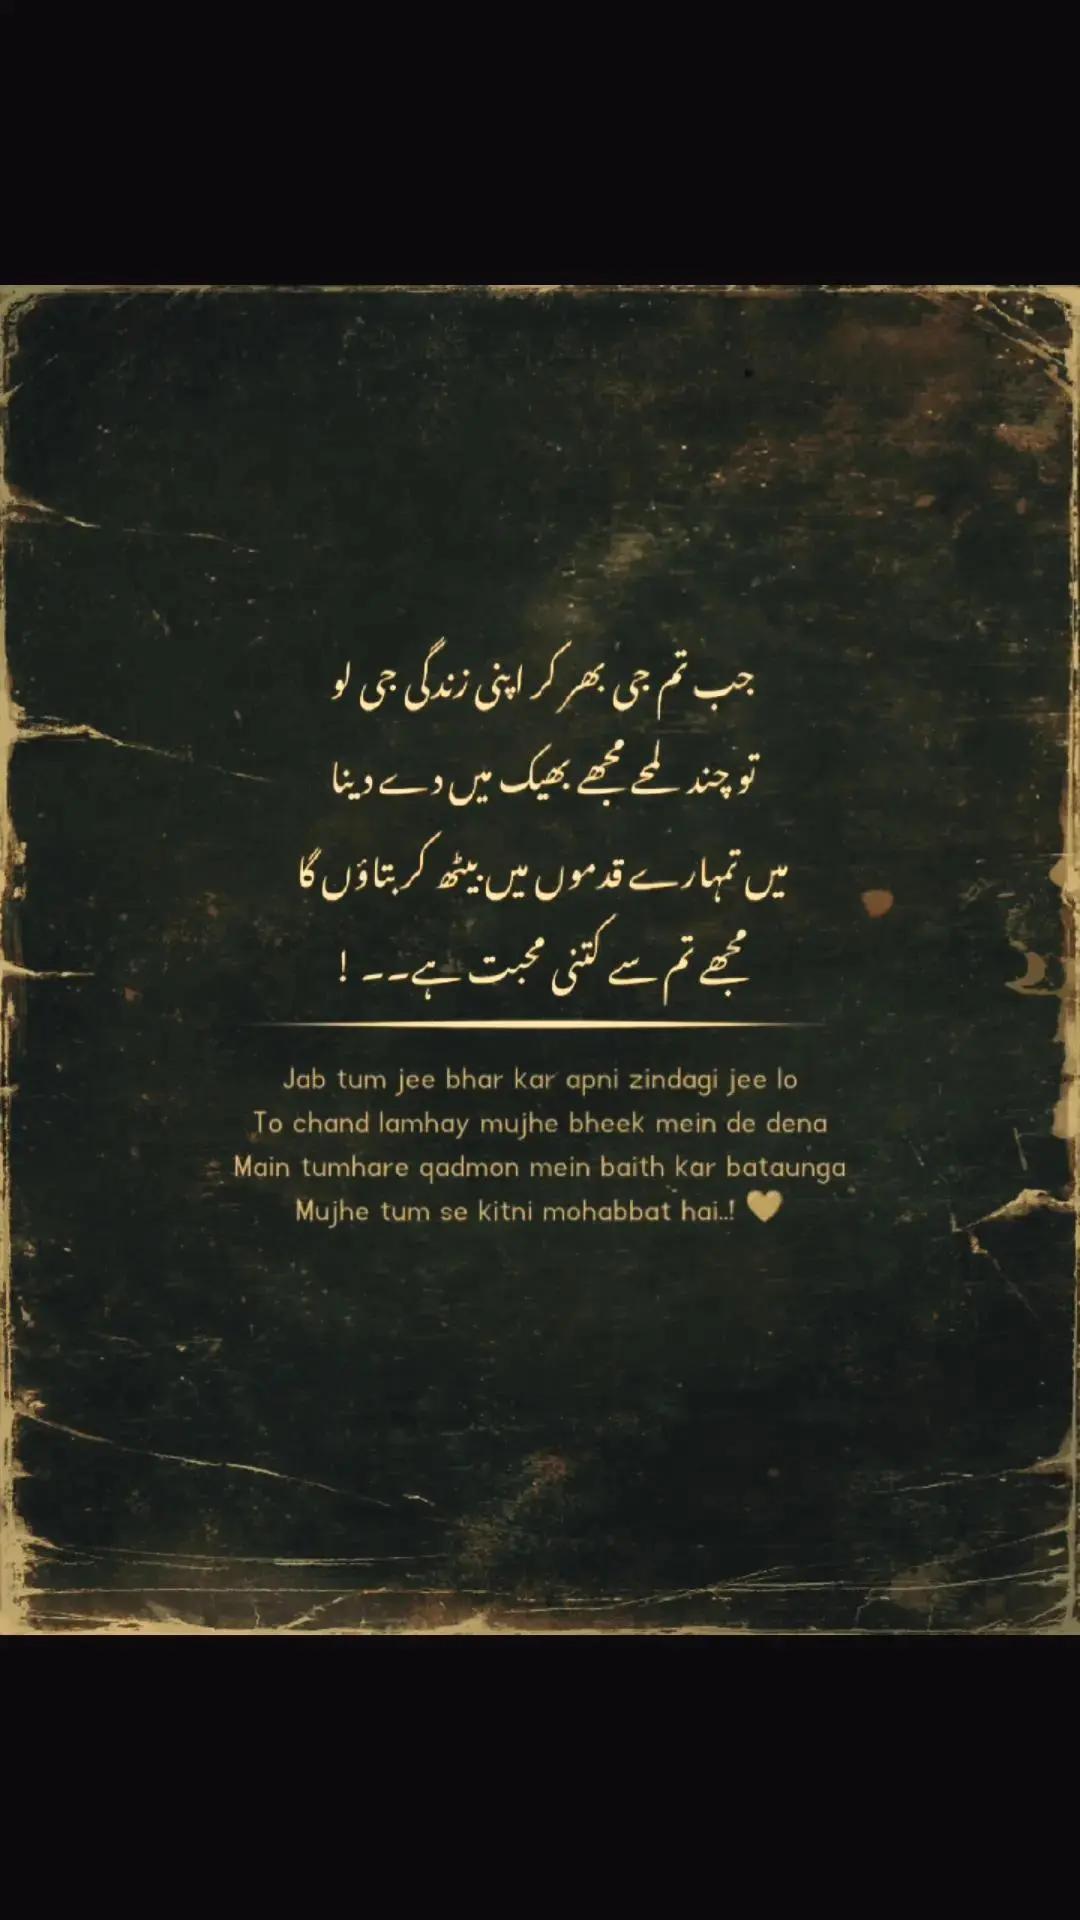 جب تم جی بھر کر اپنی زندگی جی لو
تو چند لمحے مجھے بھیک میں دے دینا
میں تمہارے قدموں میں بیٹھ کر بتاؤں گا
مجھے تم سے کتنی محبت ہے۔۔ !
Jab tum jee bhar kar apni zindagi jee lo
To chand lamhay mujhe bheek mein de dena
Main tumhare qadmon mein baith kar bataunga
Mujhe tum se kitni mohabbat hai..! 🤎